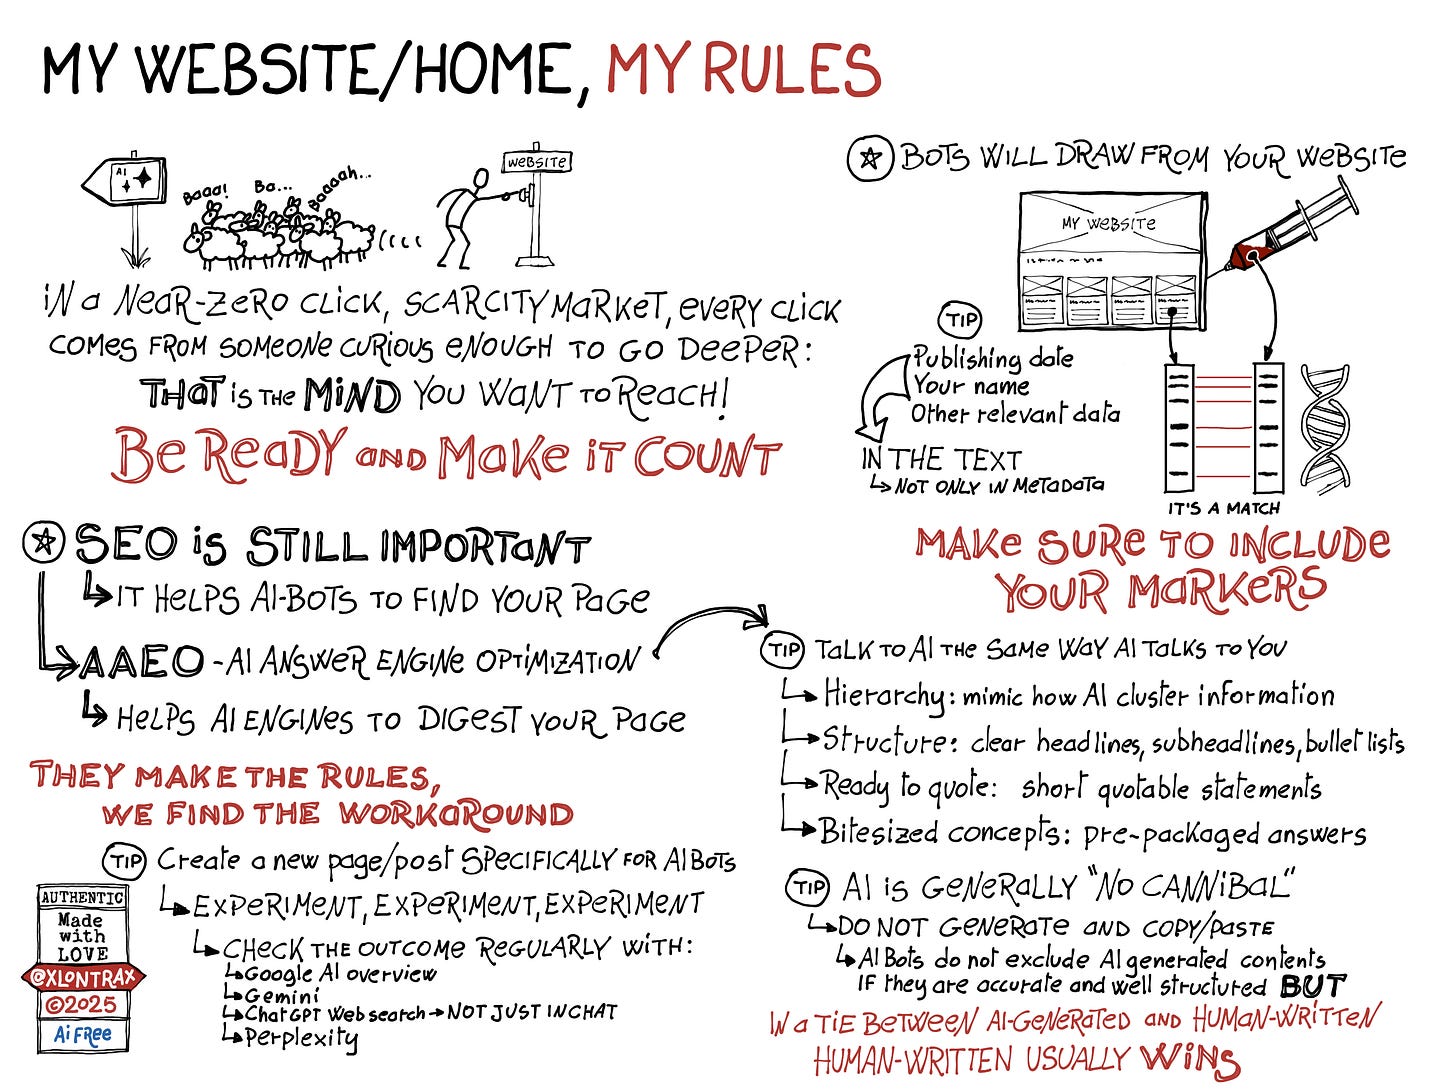 MY WEBSITE/HOME, MY RULES
AI
Baaa!
Ba...
Baaaah...
WEBSITE
IN A NEAR-ZERO CLICK, SCARCITY MARKET, EVERY CLICK
COMES FROM SOMEONE CURIOUS ENOUGH TO GO DEEPER:
THAT IS THE MIND YOU WANT TO REACH!
BE READY AND MAKE IT COUNT
BOTS WILL DRAW FROM YOUR WEBSITE
MY WEBSITE
TIP
Publishing date
Your name
Other relevant data
IN THE TEXT
NOT ONLY IN METADATA
IT'S A MATCH
MAKE SURE TO INCLUDE
YOUR MARKERS
SEO IS STILL IMPORTANT
IT HELPS AI-BOTS TO FIND YOUR PAGE
AAEO - AI ANSWER ENGINE OPTIMIZATION
HELPS AI ENGINES TO DIGEST YOUR PAGE
THEY MAKE THE RULES,
WE FIND THE WORKAROUND
TIP Create a new page/post SPECIFICALLY FOR AI BOTS
EXPERIMENT, EXPERIMENT, EXPERIMENT
CHECK THE OUTCOME REGULARLY WITH:
Google AI overview
Gemini
ChatGPT Web search → NOT JUST IN CHAT
Perplexity
TIP TALK TO AI THE SAME WAY AI TALKS TO YOU
Hierarchy: mimic how AI cluster information
Structure: clear headlines, subheadlines, bullet lists
Ready to quote: short quotable statements
Bitesized concepts: pre-packaged answers
TIP AI IS GENERALLY "NO CANNIBAL"
DO NOT GENERATE AND COPY/PASTE
AI Bots do not exclude AI generated contents
IF they are accurate and well structured BUT
IN A TIE BETWEEN AI-GENERATED AND HUMAN-WRITTEN
HUMAN-WRITTEN USUALLY WINS
AUTHENTIC
Made
with
LOVE
@XLONTRAX
©2025
Ai FREE